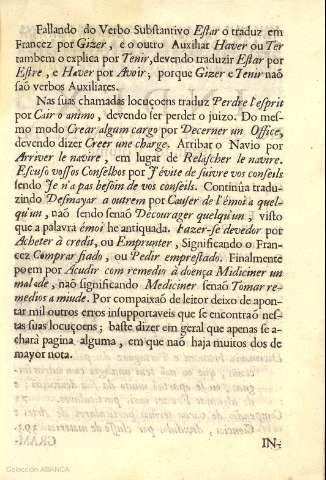 Fallando do Verbo Substantivo Estar o traduz em
Francez por Gizer, e o outro Auxiliar Haver ou Ter
tambem o explica por Tenir, devendo traduzir Estar por
Estre, e Haver por Avoir; porque Gizer e Tenir naõ
saõ verbos Auxiliares.
Nas suas chamadas locuçoens traduz Perdre l'esprit
por Cair o animo, devendo ser perder o juizo. Do mes-
mo modo Crear algum cargo por Decerner un Office,
devendo dizer Creer une charge. Arribar o Navio por
Arriver le navire, em lugar de Relascher le navire.
Escuso vossos Conselhos por J'évite de suivre vos conseils
sendo Je n'a pas besoim de vos conseils. Continúa tradu-
zindo Desmayar a outrem por Causer de l'émoi a quel-
qu'un, naõ sendo senaõ Décourager quelqu'un, visto
que a palavra émoi he antiquada. Fazer-se devedor por
Acheter à credit, ou Emprunter, Significando o Fran-
cez Comprar fiado, ou Pedir emprestado. Finalmente
poem por Acudir com remedio à doença Midiciner un
malade, naõ significando Mediciner senaõ Tomar re-
medios a miude. Por compaixaõ de leitor deixo de apon-
tar mil outros erros insupportaveis que se encontraõ nes-
tas suas locuçoens; baste dizer em geral que apenas se a-
chará pagina alguma, em que naõ haja muitos dos de
mayor nota.
IN-
Colección ABANCA